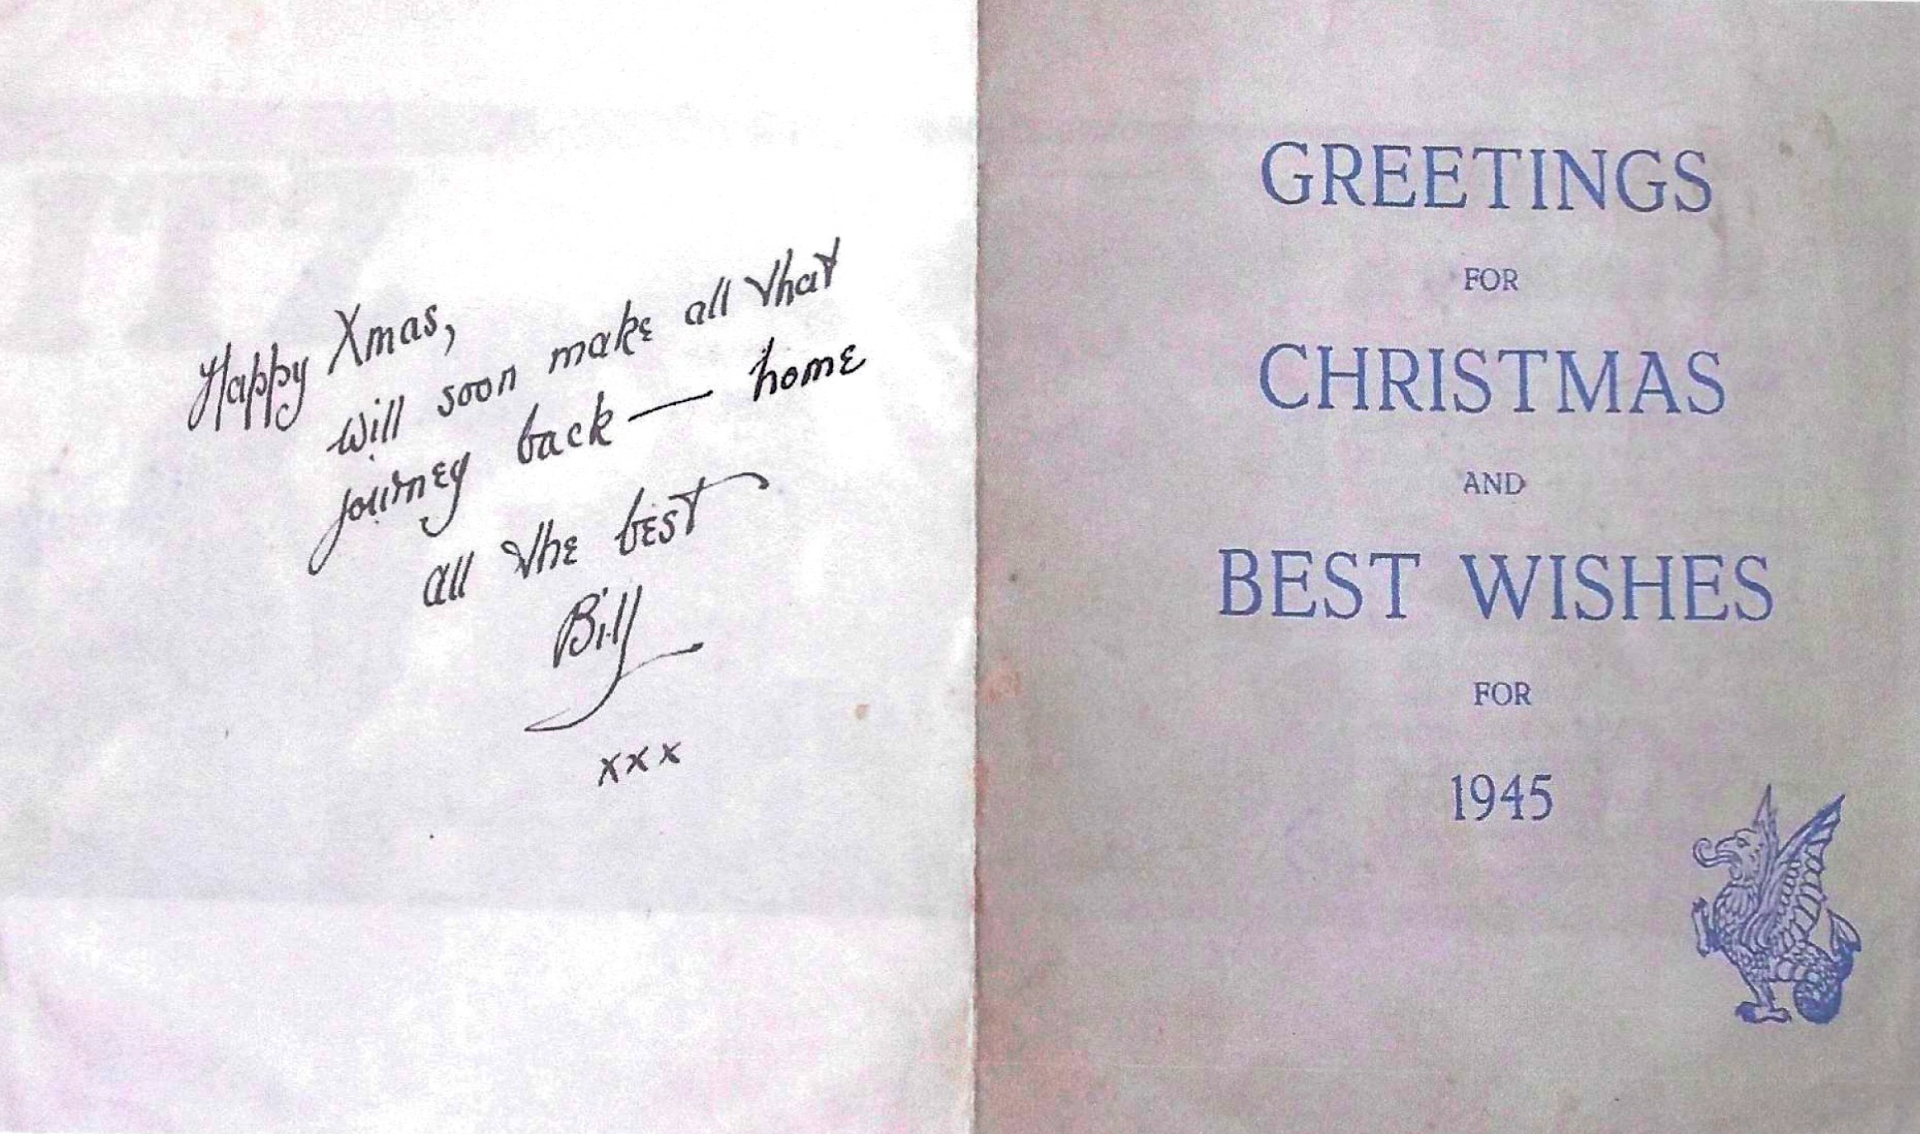 Happy Xmas,
will soon make all that
journey back — home
all the best
Bill
xxx
GREETINGS
FOR
CHRISTMAS
AND
BEST WISHES
FOR
1945